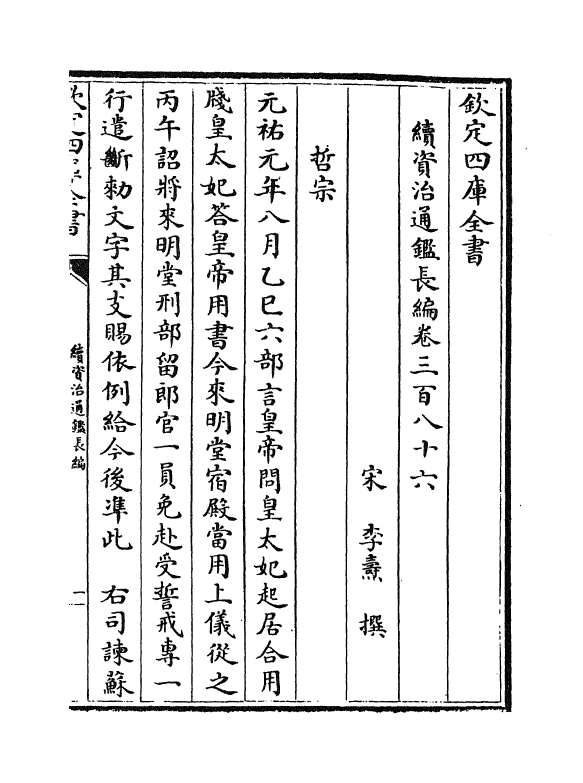 欽定四庫全書
續資治通鑑長編卷三百八十六
宋 李燾 撰
哲宗
元祐元年八月乙巳六部言皇帝問皇太妃起居合用
牋皇太妃答皇帝用書今來明堂宿殿當用上儀從之
丙午詔將來明堂刑部留郎官一員免赴受誓戒專一
行遣斷勅文字其支賜依例給今後準此 右司諫蘇
欽定四庫全書
續資治通鑑長編
一